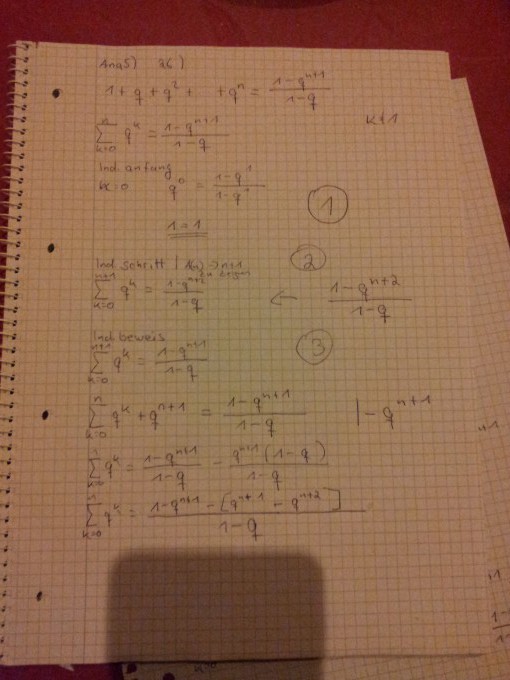 Ana5) 26)
1 + q + q² + + qⁿ = (1-qⁿ⁺¹)/(1-q)
∑_{k=0}^{n} qᵏ = (1-qⁿ⁺¹)/(1-q)
Ind. anfang
k=0 q⁰ = (1-q¹)/(1-q¹) ①
1 = 1
Ind. Schritt | A(n) → n+1 ②
zu zeigen
∑_{k=0}^{n+1} qᵏ = (1-qⁿ⁺²)/(1-q) ← (1-qⁿ⁺²)/(1-q)
Ind. beweis ③
∑_{k=0}^{n+1} qᵏ = (1-qⁿ⁺¹)/(1-q)
∑_{k=0}^{n} qᵏ + qⁿ⁺¹ = (1-qⁿ⁺¹)/(1-q) | - qⁿ⁺¹
∑_{k=0} qᵏ = (1-qⁿ⁺¹)/(1-q) - (qⁿ⁺¹(1-q))/(1-q)
∑_{k=0} qᵏ = (1-qⁿ⁺¹ - [qⁿ⁺¹ - qⁿ⁺²])/(1-q)